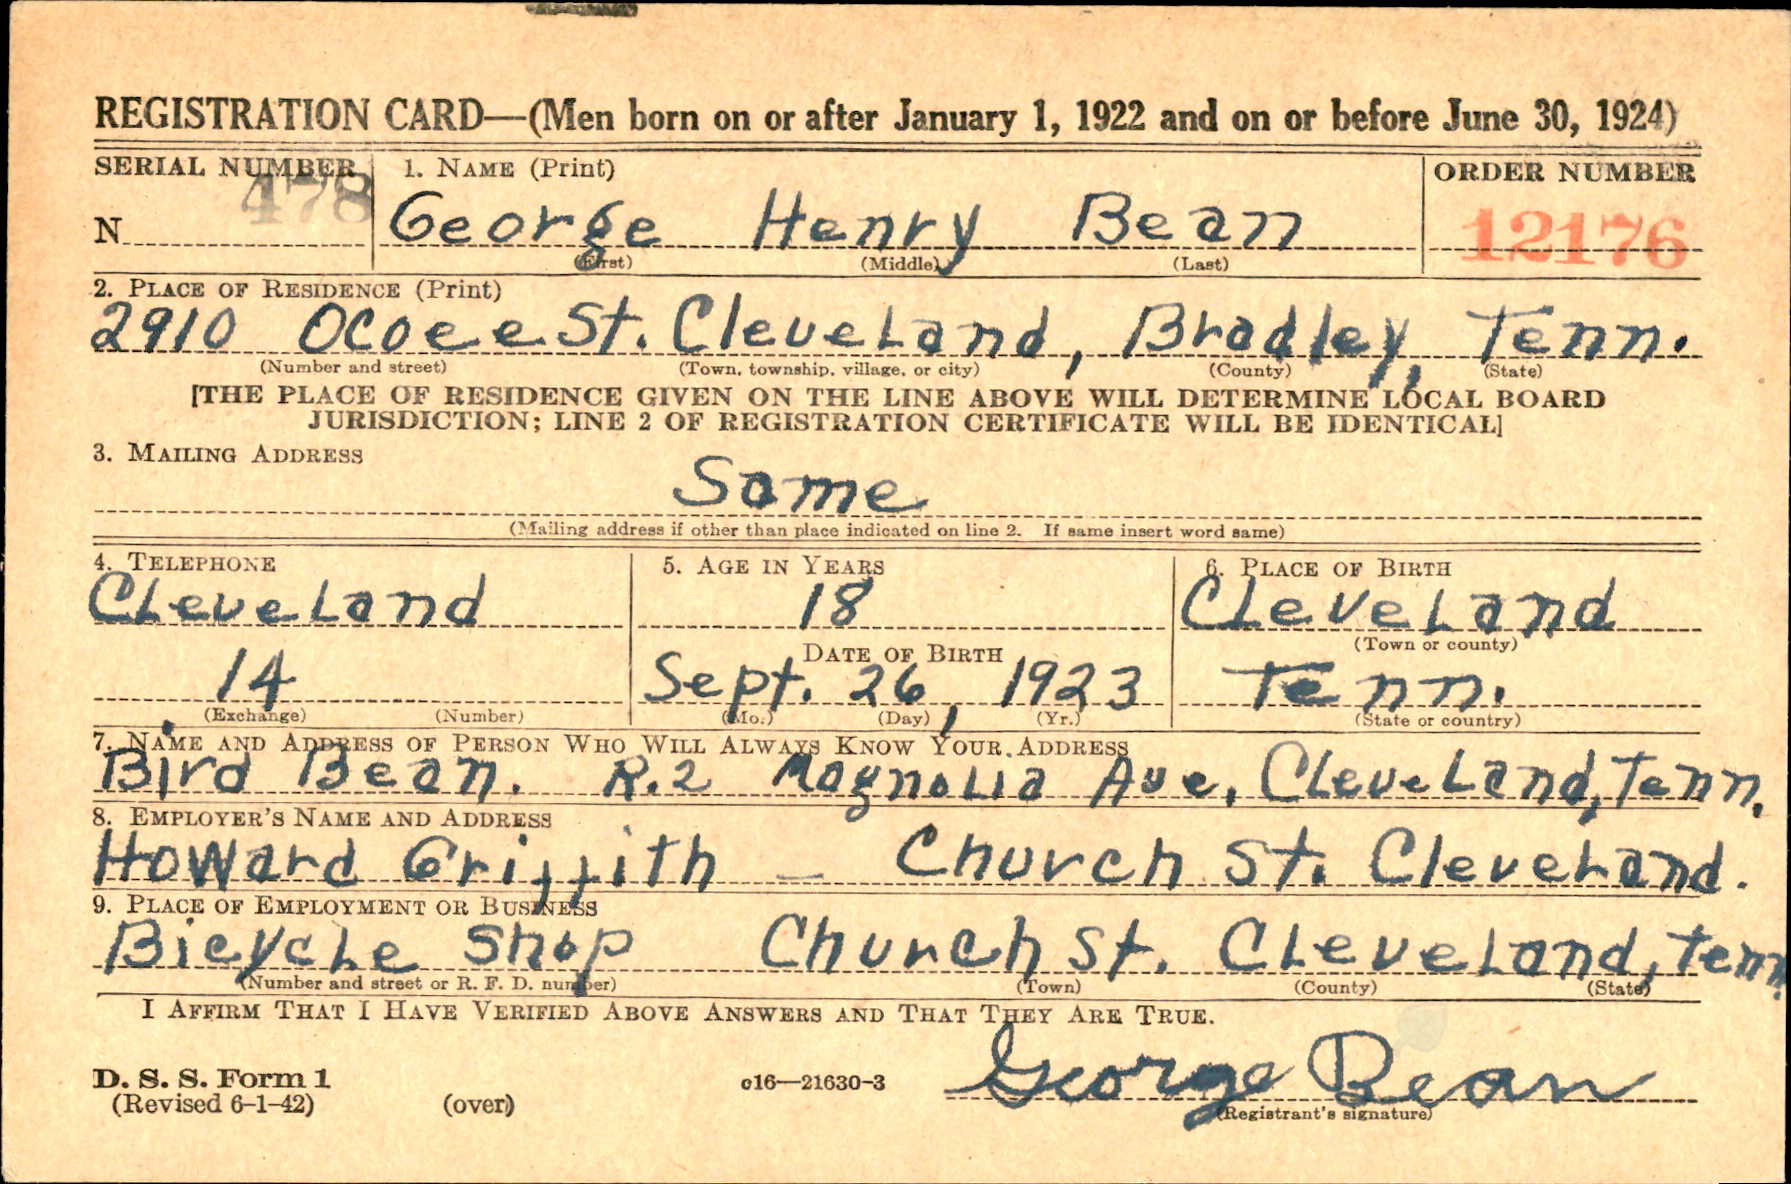 REGISTRATION CARD—(Men born on or after January 1, 1922 and on or before June 30, 1924)
SERIAL NUMBER 1. NAME (Print) ORDER NUMBER
N 478 George Henry Bean 12176
(First) (Middle) (Last)
2. PLACE OF RESIDENCE (Print)
2910 Ocoee St. Cleveland, Bradley, Tenn.
(Number and street) (Town, township, village, or city) (County) (State)
[THE PLACE OF RESIDENCE GIVEN ON THE LINE ABOVE WILL DETERMINE LOCAL BOARD
JURISDICTION; LINE 2 OF REGISTRATION CERTIFICATE WILL BE IDENTICAL]
3. MAILING ADDRESS
Same
(Mailing address if other than place indicated on line 2. If same insert word same)
4. TELEPHONE 5. AGE IN YEARS 6. PLACE OF BIRTH
Cleveland 18 Cleveland
DATE OF BIRTH (Town or county)
14 Sept. 26, 1923 Tenn.
(Exchange) (Number) (Mo.) (Day) (Yr.) (State or country)
7. NAME AND ADDRESS OF PERSON WHO WILL ALWAYS KNOW YOUR ADDRESS
Bird Bean. R.2 Magnolia Ave, Cleveland, Tenn.
8. EMPLOYER'S NAME AND ADDRESS
Howard Griffith — Church St. Cleveland.
9. PLACE OF EMPLOYMENT OR BUSINESS
Bicycle Shop Church St. Cleveland, Tenn
(Number and street or R. F. D. number) (Town) (County) (State)
I AFFIRM THAT I HAVE VERIFIED ABOVE ANSWERS AND THAT THEY ARE TRUE.
George Bean
D. S. S. Form 1 c16—21630-3
(Revised 6-1-42) (over) (Registrant's signature)